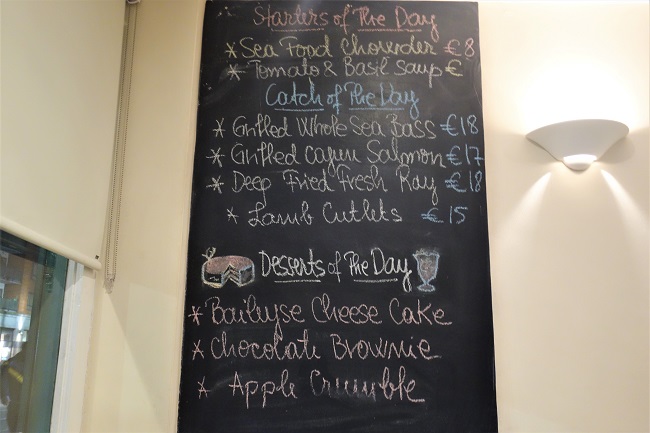 Starters of The Day
* Sea Food Chowder €8
* Tomato & Basil Soup €
Catch of The Day
* Grilled Whole Sea Bass €18
* Grilled Cajun Salmon €17
* Deep Fried Fresh Ray €18
* Lamb Cutlets €15
Desserts of The Day
* Baileyse Cheese Cake
* Chocolate Brownie
* Apple Crumble